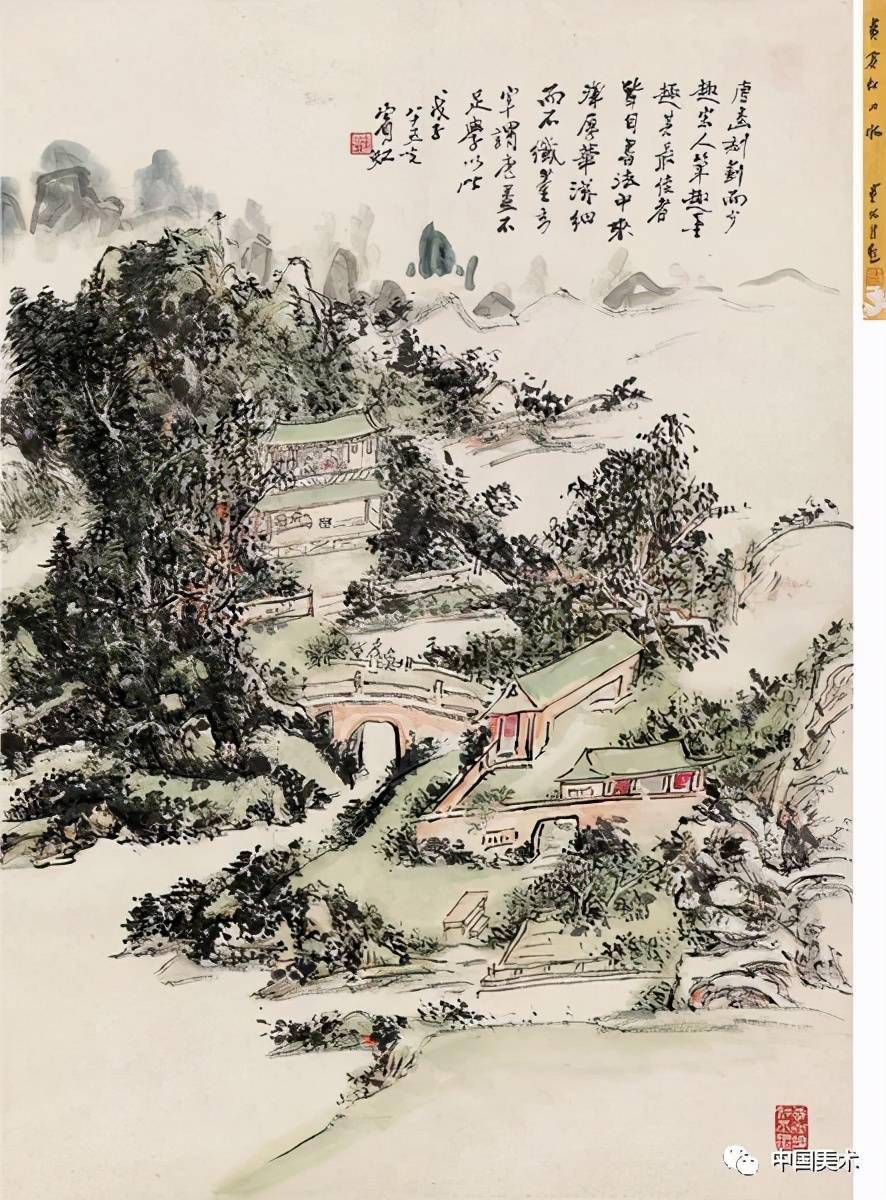 唐畫刻劃而少
趣宋人筆趣墨
趣其最佳者
皆自書法中來
渾厚華滋細
而不纖董玄
宰謂唐畫不
足學以此
戊子
八十五叟
賓虹
黃賓虹山水
中国美术